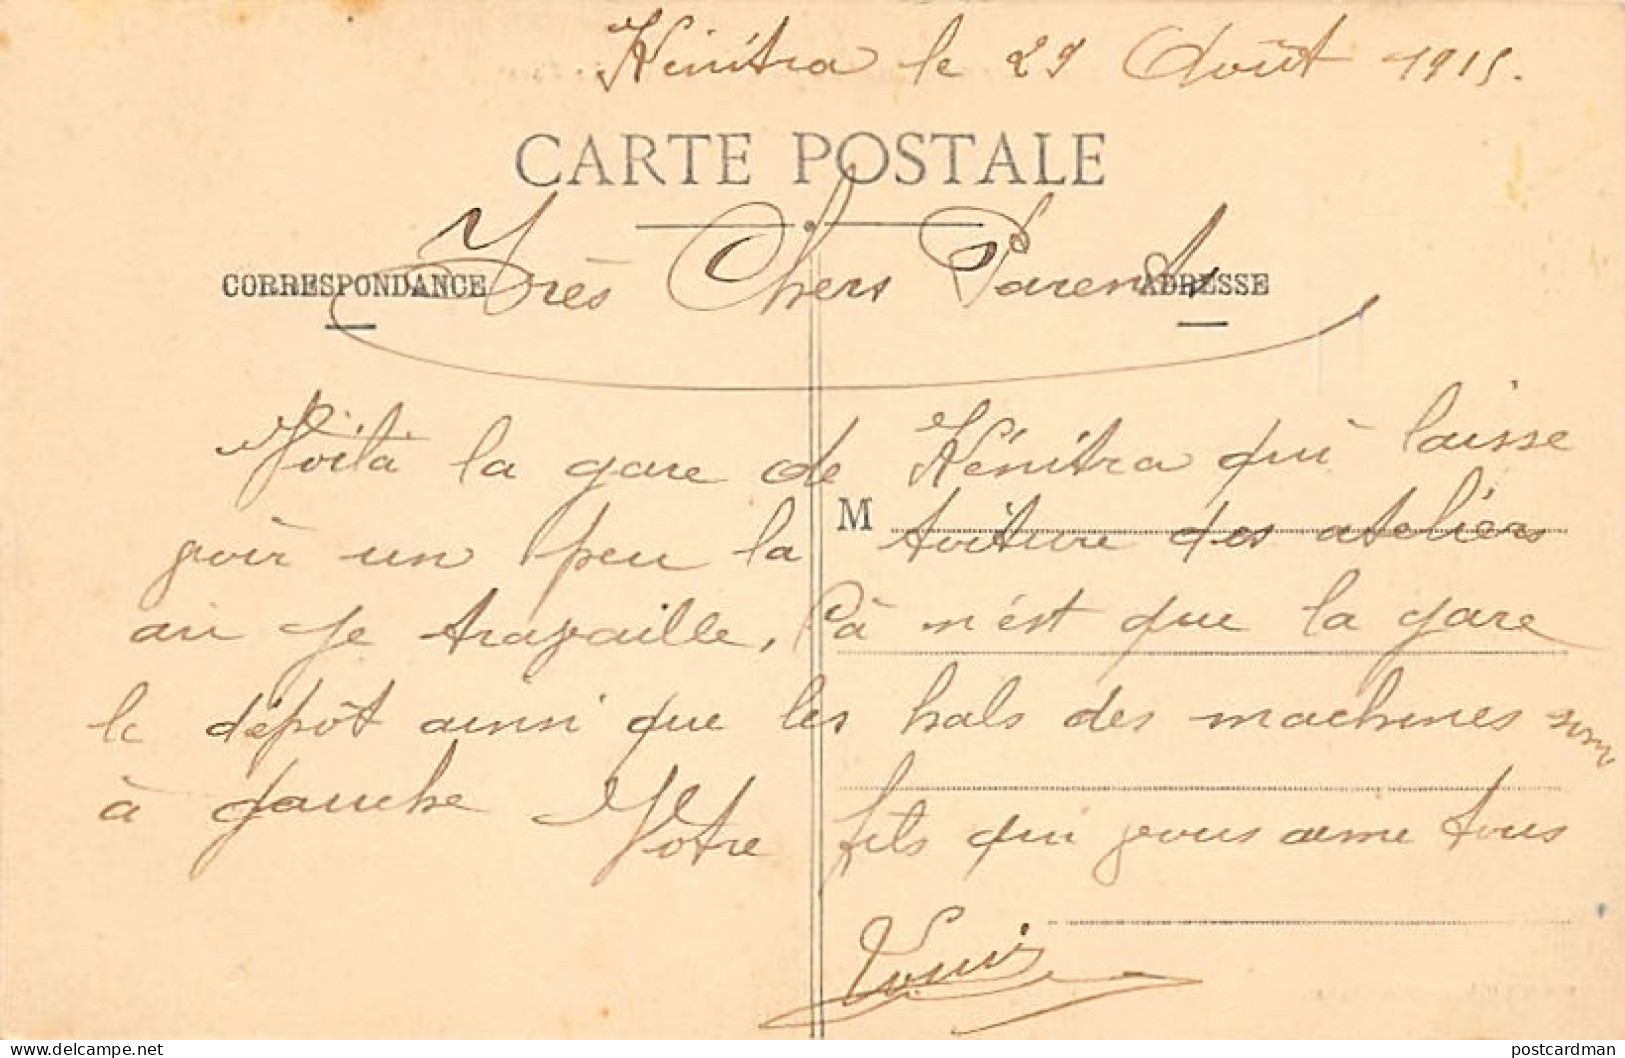 Kénitra le 29 Août 1915.
CARTE POSTALE
CORRESPONDANCE
ADRESSE
Très Chers Parents
Voilà la gare de Kénitra qui laisse
M
voir un peu la toiture des ateliers
où je travaille, Çà n'est que la gare
le dépôt ainsi que les hals des machines sont
à gauche Votre fils qui vous aime tous
Louis
postcardman